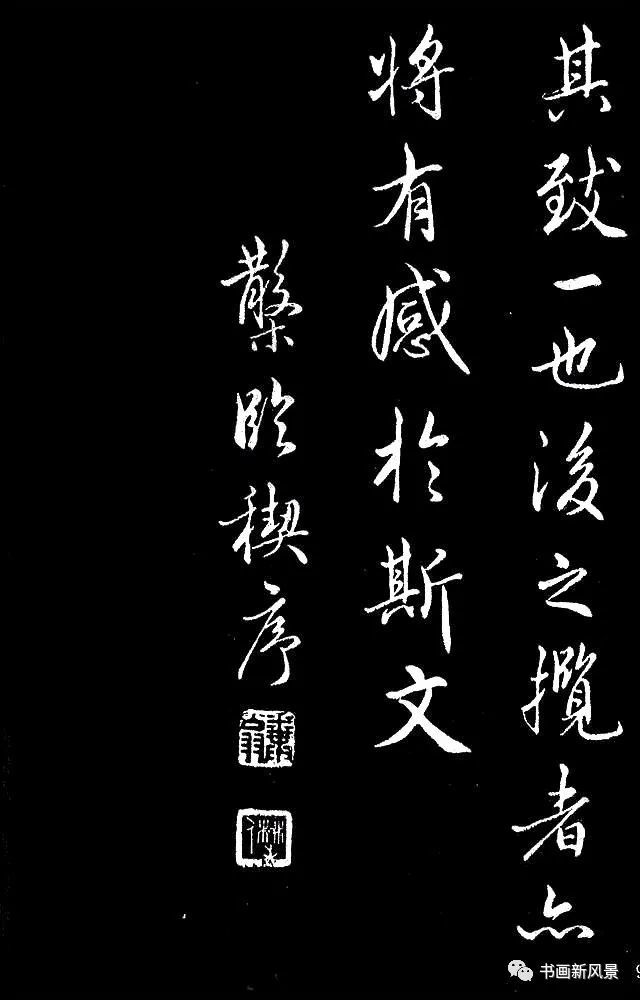 其致一也後之攬者亦
将有感於斯文
臨稧序
书画新风景